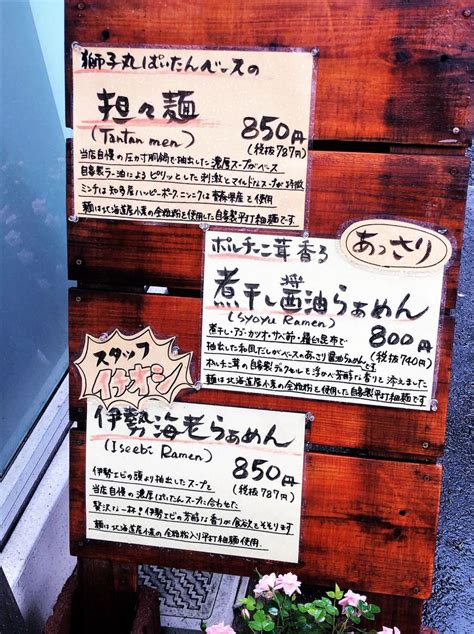 獅子丸ぱいたんベースの
担々麺
(Tantan men)
850円
(税抜787円)
当店自慢の圧力寸胴鍋で抽出した濃厚スープがベース
自家製ラー油によるピリッとした刺激とマイルドなスープが特徴
ミンチは知多産ハッピーポーク、ニンニクは青森県産を使用
麺は北海道産小麦の全粒粉を使用した自家製平打細麺です
あっさり
ポルチーニ茸香る
煮干し醤油らぁめん
(Syoyu Ramen)
800円
(税抜740円)
煮干し・アゴ・カツオ・サバ節・羅臼昆布で
抽出した和風だしがベースのあっさり醤油らぁめんです
ポルチーニ茸の自家製デュクセルを浮かべ芳醇な香りを添えました
麺は北海道産小麦の全粒粉を使用した自家製平打細麺です
スタッフ
イチオシ
伊勢海老らぁめん
(Iseebi Ramen)
850円
(税抜787円)
伊勢エビの頭より抽出したスープと
当店自慢の濃厚ぱいたんスープに合わせた
贅沢な一杯!伊勢エビの芳醇な香りが食欲をそそります
麺は北海道産小麦の全粒粉入り平打細麺使用